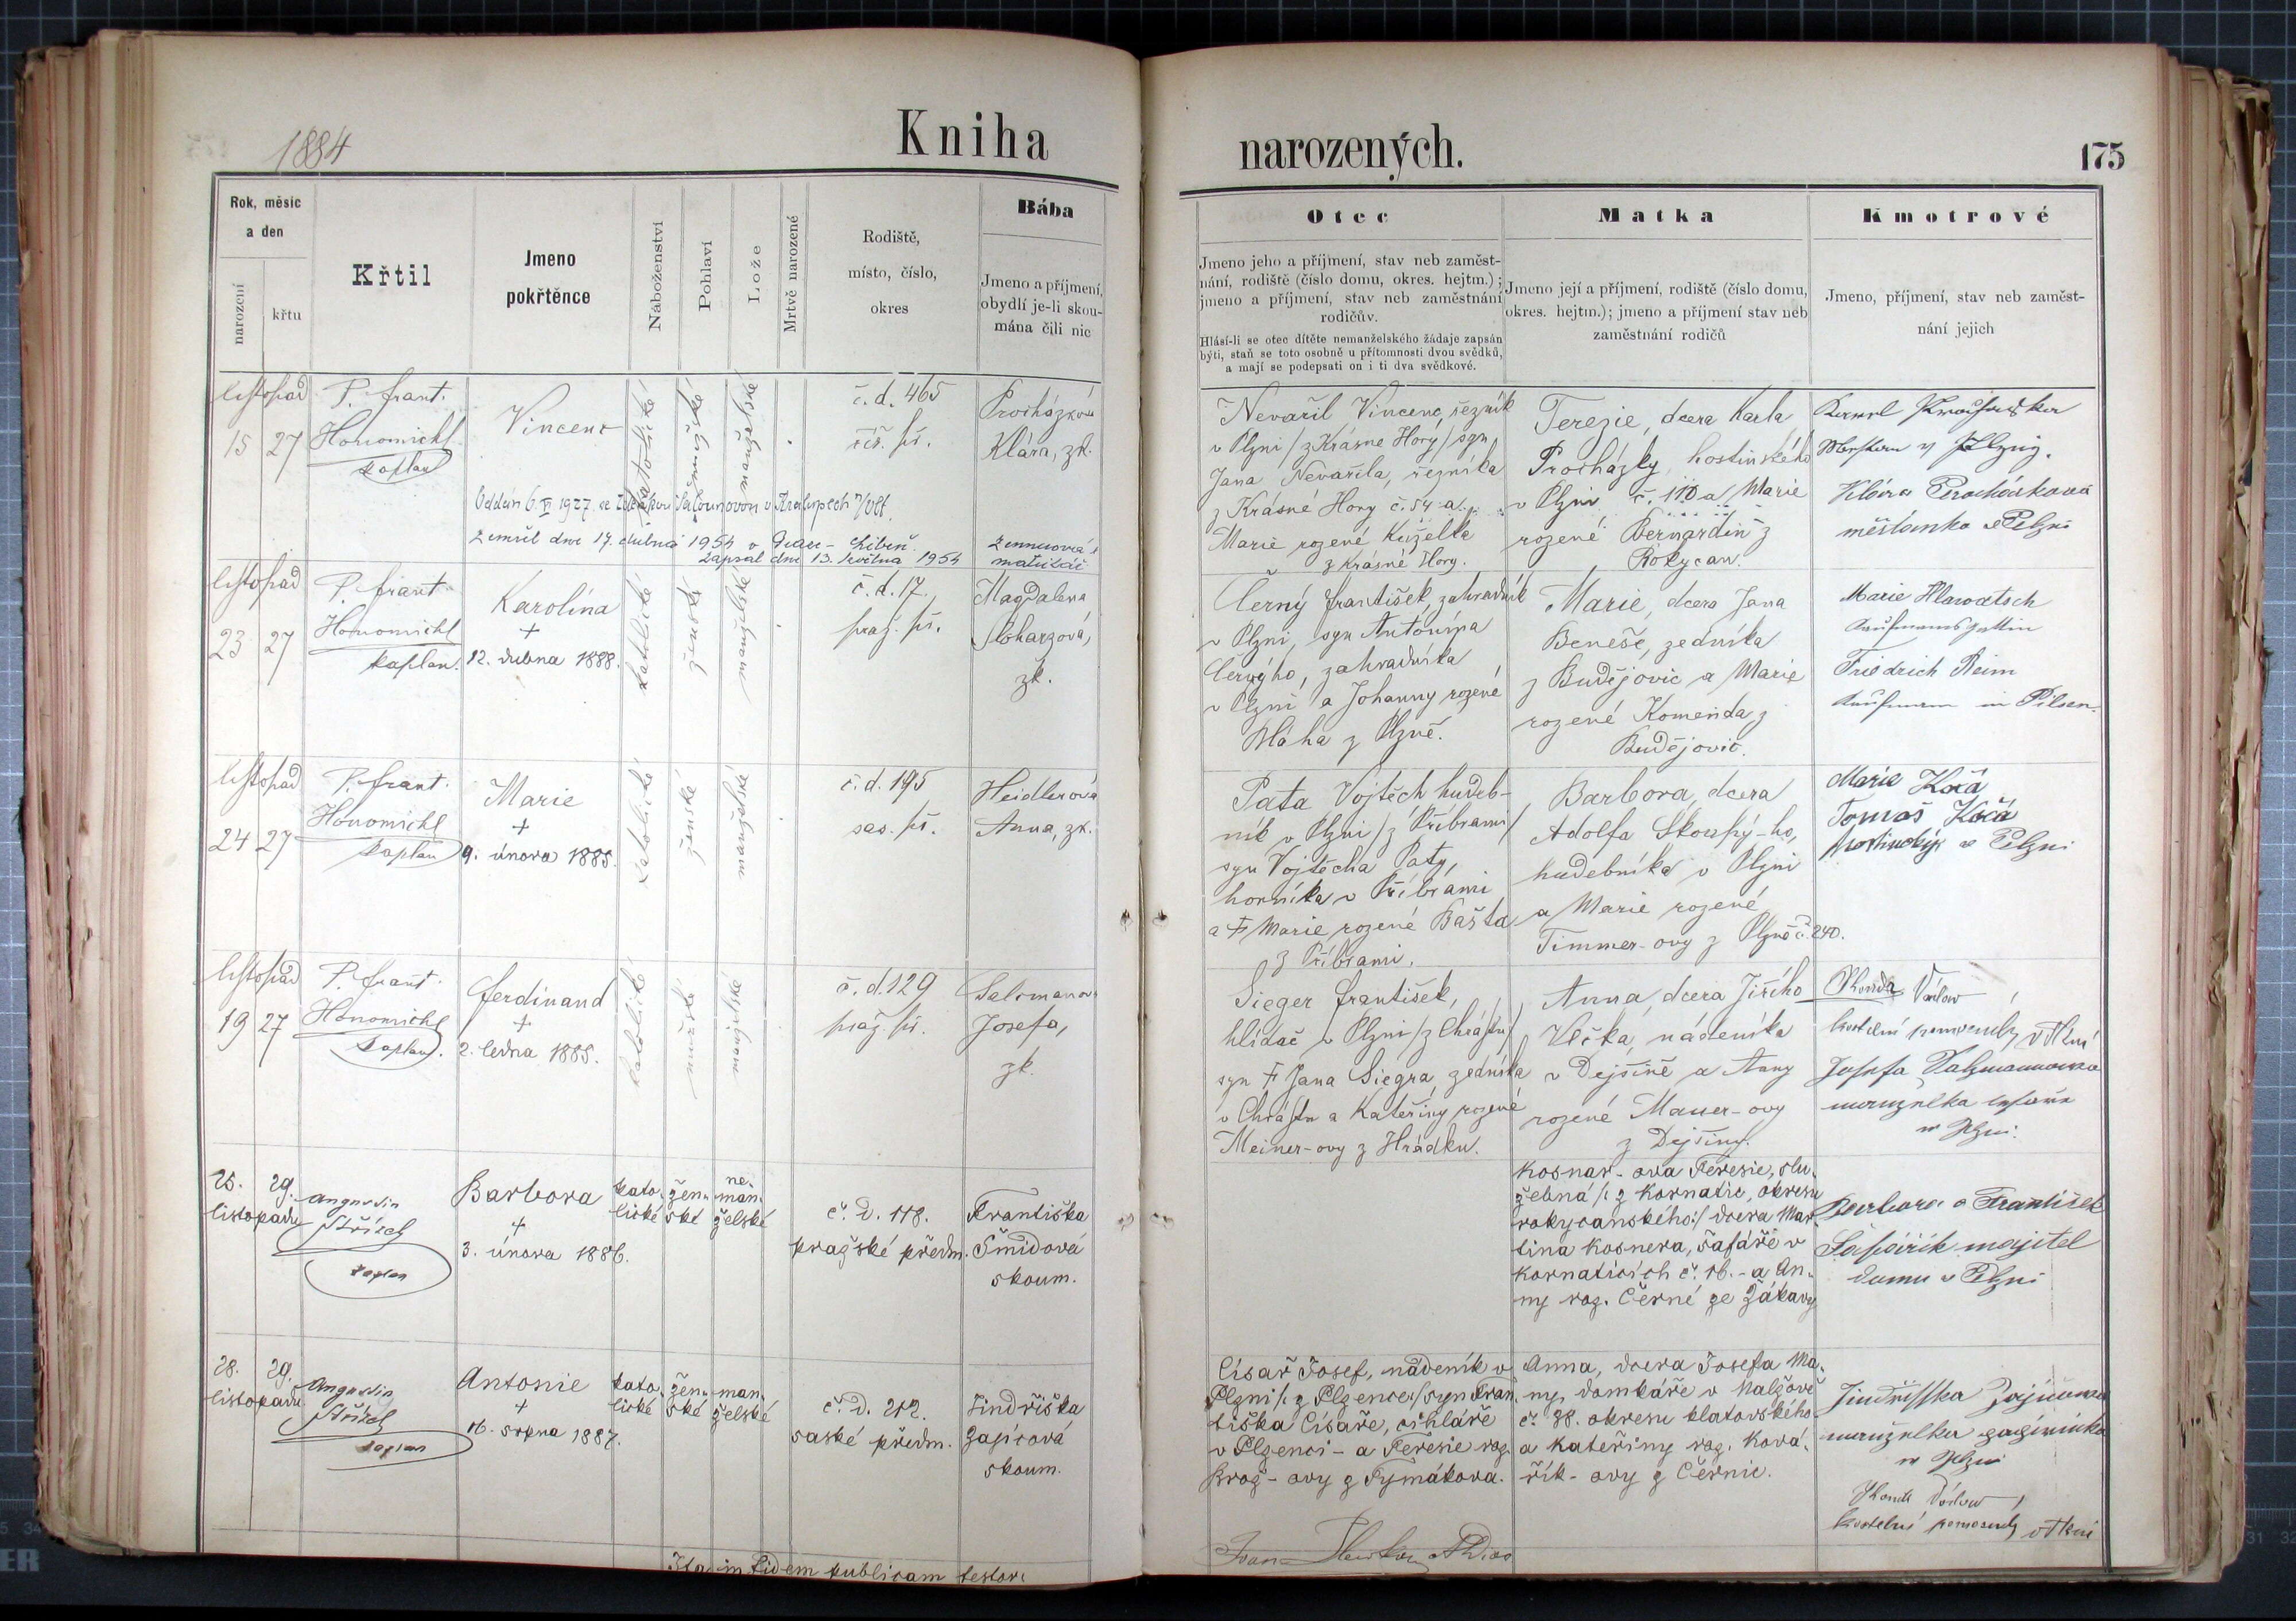 1884
Kniha
narozených.
175
Rok, měsíc
a den
narození
křtu
Křtil
Jmeno
pokřtěnce
Náboženství
Pohlaví
Lože
Mrtvě narozené
Rodiště,
místo, číslo,
okres
Bába
Jmeno a příjmení,
obydlí je-li skou-
mána čili nic
Otec
Jmeno jeho a příjmení, stav neb zaměst-
nání, rodiště (číslo domu, okres. hejtm.);
jmeno a příjmení, stav neb zaměstnání
rodičův.
Hlásí-li se otec dítěte nemanželského žádaje zapsán
býti, staň se toto osobně u přítomnosti dvou svědků,
a mají se podepsati on i ti dva svědkové.
Matka
Jmeno její a příjmení, rodiště (číslo domu,
okres. hejtm.); jmeno a příjmení stav neb
zaměstnání rodičů
Kmotrové
Jmeno, příjmení, stav neb zaměst-
nání jejich
listopad
15 27
P. frant.
Honomichl
kaplan
Vincenc
katolické
mužské
manželské
č. d. 465
říš. př.
Procházková
Klára, zk.
Oddán 6. V. 1927 se Šalounovou v Kralupech n/Vlt.
Zemřel dne 17. dubna 1954 v Praze - Libeň.
Zapsal dne 13. května 1954
matrikář
Nevařil Vincenc, řezník
v Plzni /z Krásné Hory/ syn
Jana Nevařila, řezníka
z Krásné Hory č. 54 a
Marie rozené Kuželka
z Krásné Hory.
Terezie, dcera Karla
Procházky, hostinského
v Plzni č. 110 a Marie
rozené Bernardin z
Rokycan.
Karel Procházka
Klára Procházková
měšťanka v Plzni
listopad
23 27
P. frant.
Honomichl
kaplan.
Karolina
+
12. dubna 1888.
katolické
ženské
manželské
č. d. 17.
praž. př.
Magdalena
zk.
Černý František zahradník
v Plzni, syn Antonína
Černýho, zahradníka
v Plzni a Johanny rozené
Bláha z Plzně.
Marie, dcera Jana
Beneše, zedníka
z Budějovic a Marie
rozené Komenda z
Budějovic.
Marie Hlawatsch
Kaufmannsgattin
Friedrich Reim
Kaufmann in Pilsen.
listopad
24 27
P. frant.
Honomichl
kaplan
Marie
+
9. února 1885.
katolické
ženské
manželské
č. d. 195
sas. př.
Heidlerová
Anna, zk.
Pata Vojtěch hudeb-
ník v Plzni /z Příbrami/
syn Vojtěcha Paty,
horníka v Příbrami
a † Marie rozené Bašta
z Příbrami.
Barbora, dcera
Adolfa Skoupý-ho,
hudebníka v Plzni
a Marie rozené
Timmer-ovy z Plzně č. 240.
Marie Kočí
Tomaš Kočí
hostinský v Plzni
listopad
19 27
P. frant.
Honomichl
kaplan.
Ferdinand
+
2. ledna 1885.
katolické
mužské
manželské
č. d. 129
praž. př.
Salomanov
Josefa,
zk.
Sieger František,
hlídač v Plzni /z Chrástu/
syn † Jana Siegra, zedníka
v Chrástu a Kateřiny rozené
Meiner-ovy z Hrádku.
Anna, dcera Jiřího
Vlčka, nádeníka
v Dejšině a Anny
rozené Mauer-ovy
z Dejšiny.
Václav
kostelní pomocník v Plzni
Josefa
manželka
v Plzni.
25. 29.
listopadu
Augustin
Střízek
kaplan
Barbora
+
3. února 1886.
kato-
lické
žen-
ské
ne-
man-
želské
č. d. 118.
pražské předm.
Františka
Šmidová
skoum.
Kosnar-ova Teresie, slu-
žebná /: z Kornatic, okresu
rokycanského:/ dcera Mar-
tina Kosnera, šafáře v
Kornaticích č. 16. - a An-
ny roz. Černé ze Žákavy
Barbora a František
Šafařík majitel
domu v Plzni
28. 29.
listopadu
Augustin
Střízek
kaplan
Antonie
+
16. srpna 1887.
kato-
lické
žen-
ské
man-
želské
č. d. 212.
saské předm.
Jindřiška
Zajícová
skoum.
Císař Josef, nádeník v
Plzni /: z Plzence:/ syn Fran-
tiška Císaře, cihláře
v Plzenci - a Teresie roz.
Brož-ovy z Tymákova.
Anna, dcera Josefa Ma-
ny, domkáře v Malžově
č. 88. okresu klatovského
a Kateřiny roz. Ková-
řík-ovy z Černic.
Jindřiška Zajícova
manželka
v Plzni
Václav
kostelní pomocník v Plzni
Ita in fidem publicam testor: